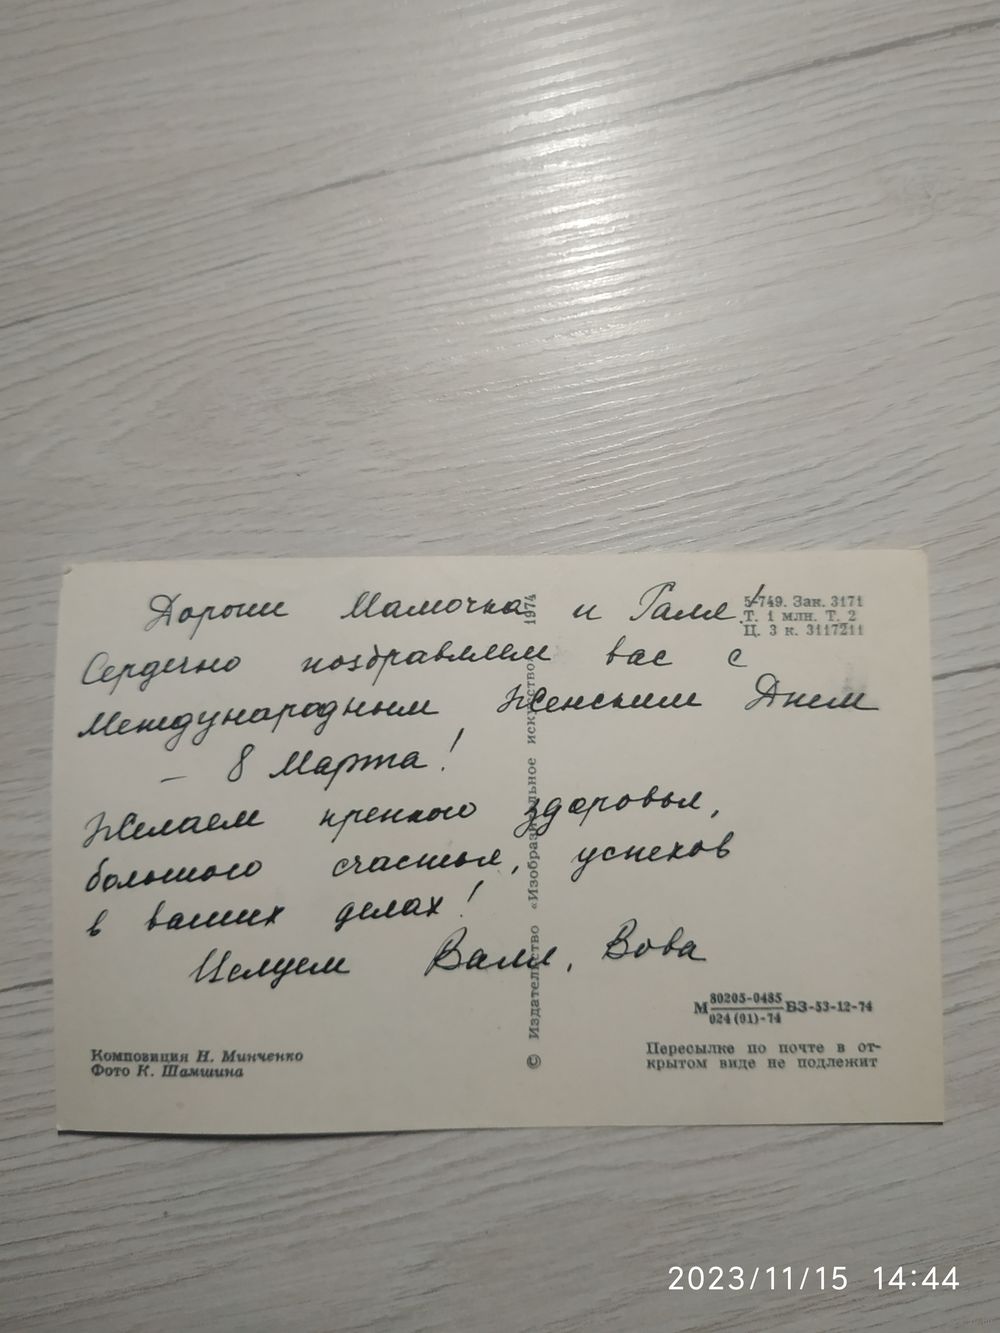 Дорогие Мамочка и Галя!
Сердечно поздравляем вас с
Международным Женским Днем
– 8 Марта!
Желаем крепкого здоровья,
большого счастья, успехов
в ваших делах!
Целуем Валя, Вова
5-749. Зак. 3171
Т. 1 млн. Т. 2
Ц. 3 к. 3117211
© Издательство «Изобразительное искусство», 1974
М 80205-0485 БЗ-53-12-74
024(01)-74
Пересылке по почте в от-
крытом виде не подлежит
Композиция Н. Минченко
Фото К. Шамшина
2023/11/15 14:44